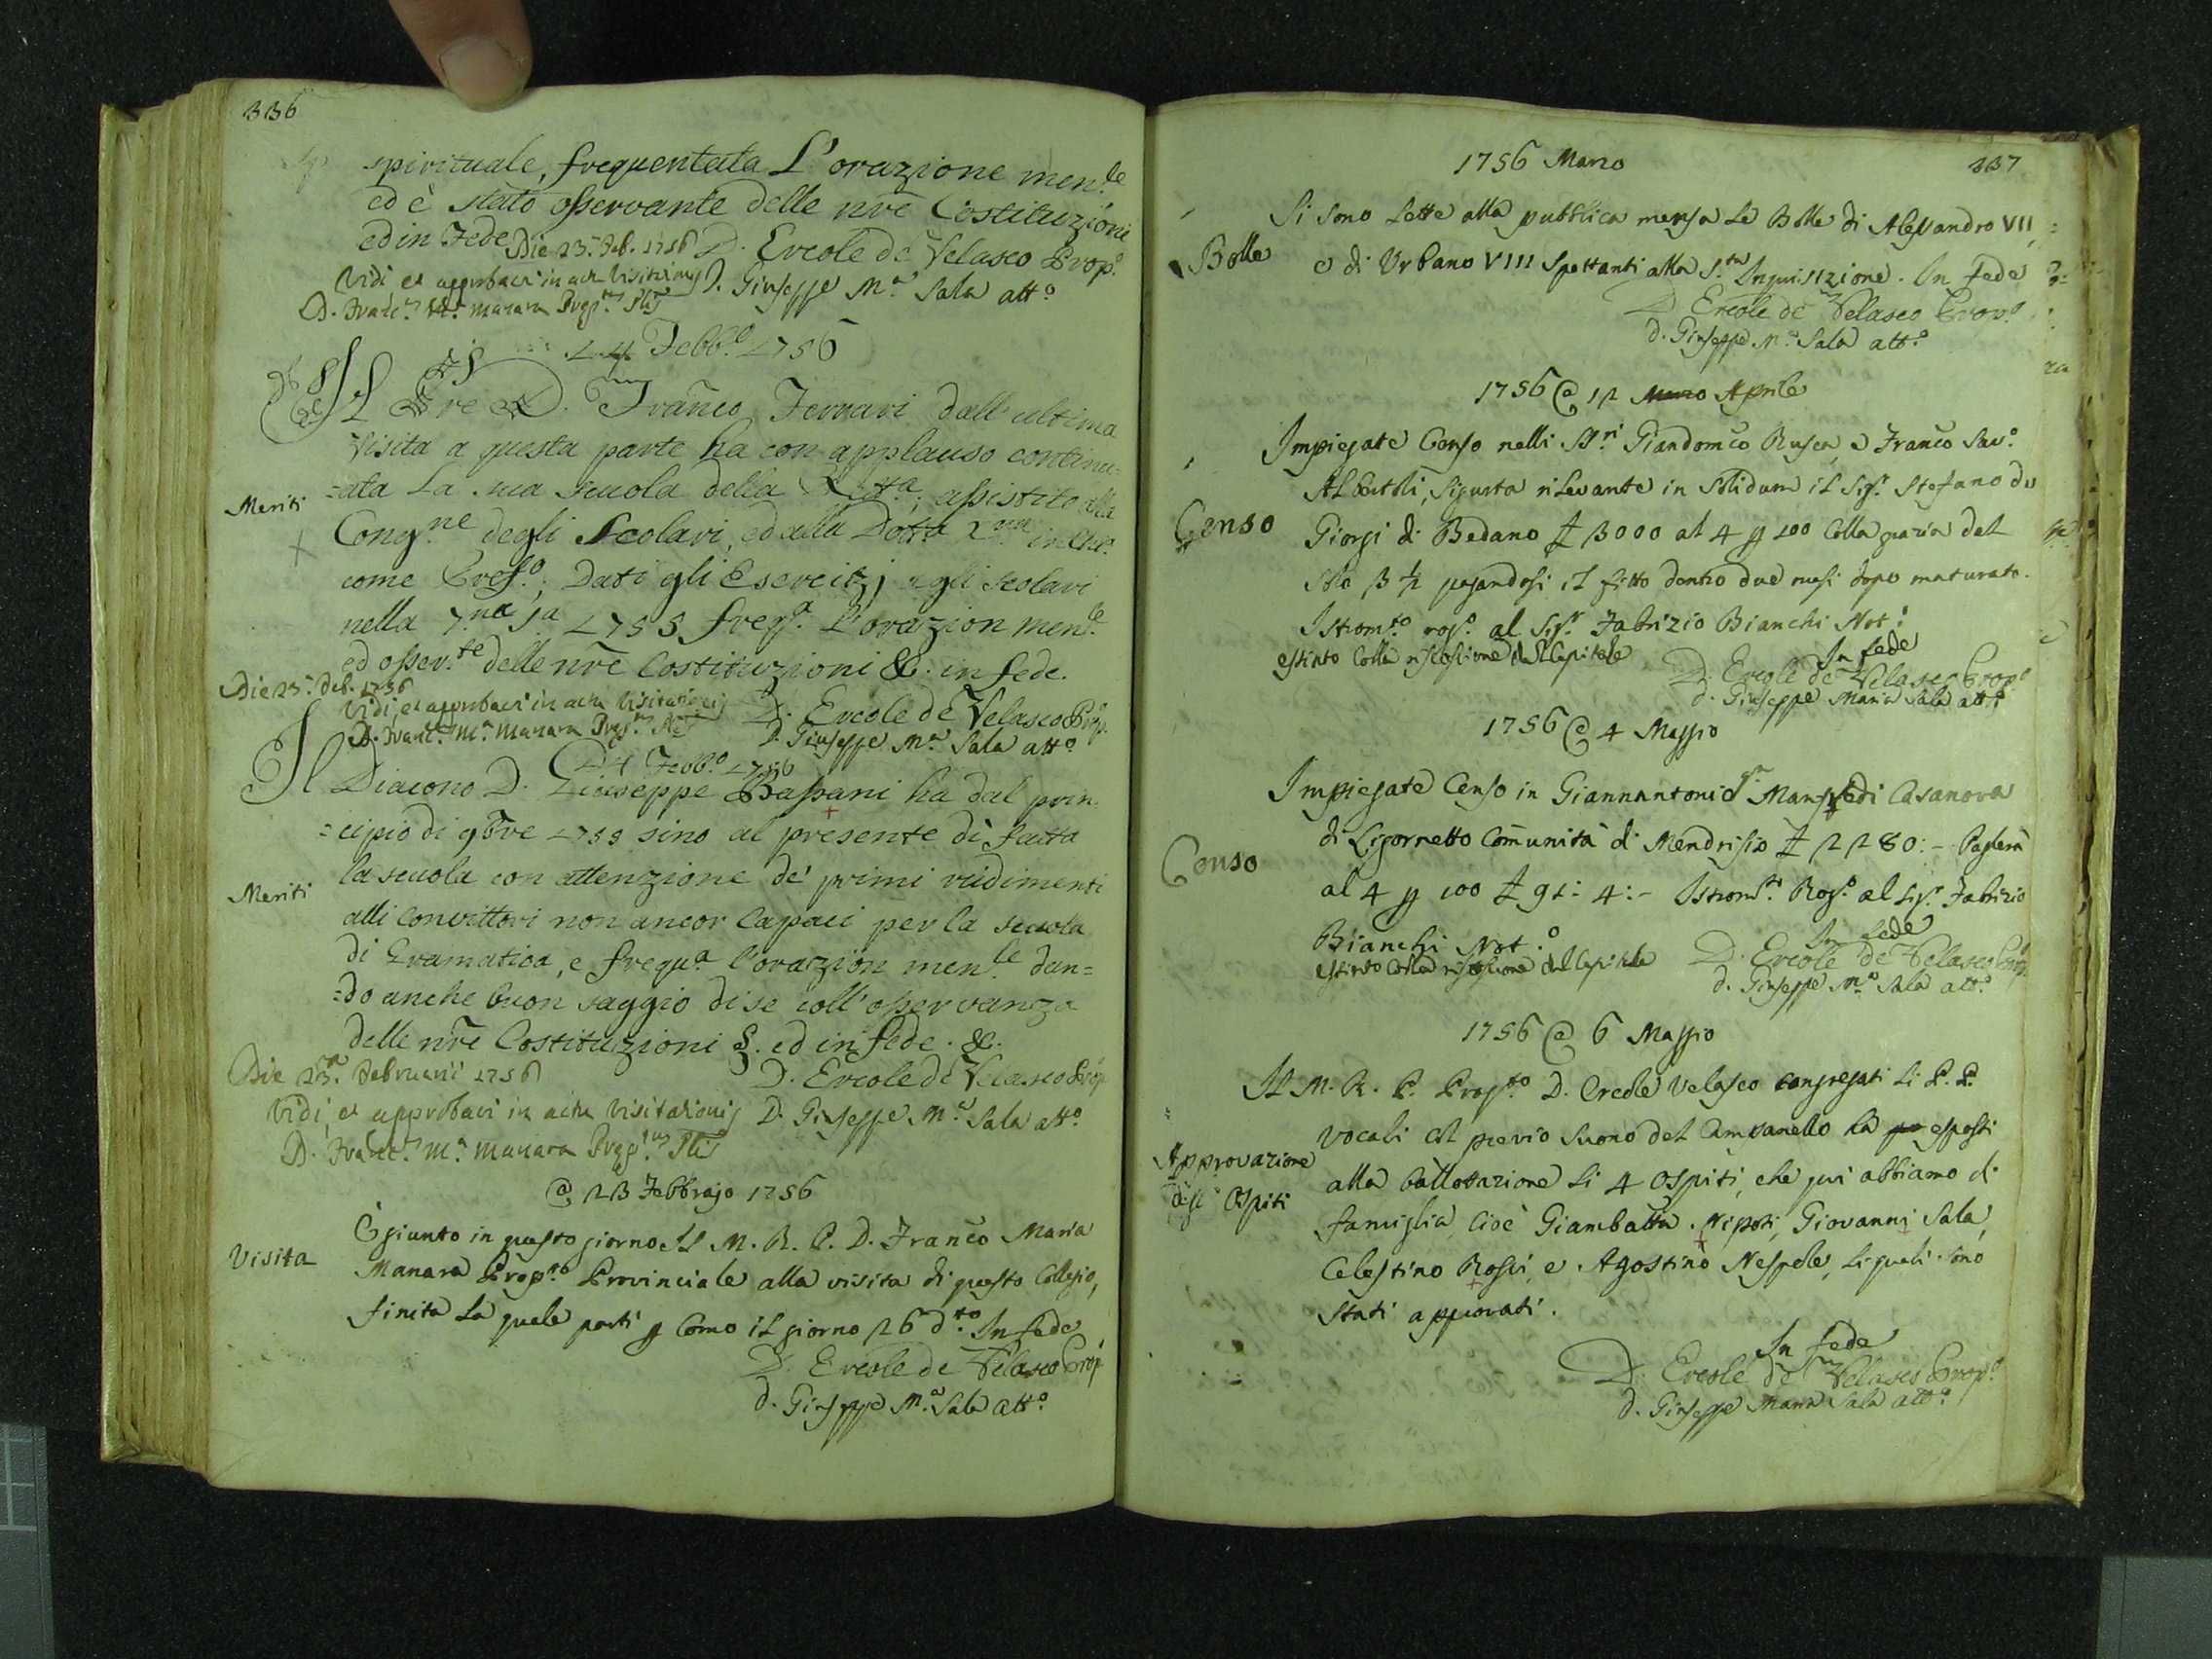 336
spirituale, frequentata L'orazione men.le
ed è stato osservante delle nr̃e Costituzioni
ed in Fede D. Ercole de Velasco Prop.o
Die 23. Feb. 1756
Vidi et approbavi in actu Visitãnis D. Giuseppe M.a Sala att.o
D. Franc.s M.a Manara Prep.tus Plis
24 Febb.o 1756
Il Pre D. Franc̃o Ferrari dall'ultima
Visita a questa parte ha con applauso continu=
=ata La sua scuola della Rett.a, assistito alla
Meriti
Cong.ne degli Scolari, ed alla Dott.a X.na in Chi.a
come Conf.o; Dati gli Esercitzj agli scolari
nella 7.na s.a 1755 freq.a L'orazion men.le
ed osser.te delle nr̃e Costituzioni &. in fede.
Die 23. Feb. 1756
Vidi, et approbavi in actu Visitationis D. Ercole de Velasco Prop.
D. Franc.s M.a Manara Prep.tus Plis D. Giuseppe M.a Sala att.o
24 Febb.o 1756
Il Diacono D. Giuseppe Bassani ha dal prin
=cipio di 9bre 1755 sino al presente dì fatta
la scuola con attenzione de' primi rudimenti
Meriti
alli convittori non ancor Capaci per la scuola
di Gramatica, e frequ.a l'orazion men.le dan=
=do anche buon saggio di se coll'osservanza
delle nr̃e Costituzioni §. ed in fede. &.
Die 23.a Februarii 1756 D. Ercole de Velasco Prop.
Vidi, et approbavi in actu Visitationis D. Giuseppe M.a Sala att.o
D. Franc.s M.a Manara Prep.tus Plis
@ 23 Febbrajo 1756
È giunto in questo giorno Il M. R. P. D. Franc̃o Maria
Visita
Manara Prop.to Provinciale alla visita di questo Collegio,
finita La quale partì p Como il giorno 26 d.to In fede
D. Ercole de Velasco Prop.
D. Giuseppe M.a Sala att.o
1756 Marzo
337
Si sono Lette alla pubblica mensa Le Bolle di Alessandro VII,
Bolle
e di Urbano VIII Spettanti alla S.ta Inquisizione. In fede
D. Ercole de Velasco Prop.o
D. Giuseppe M.a Sala att.o
1756 @ 12 Marzo Aprile
Impiegato Censo nelli SS.ri Giandom̃co Rusca, e Franc̃o Sav.o
Albertoli, Sigurtà rilevante in Solidum il Sig.r Stefano de
Censo
Giorgi di Bedano £ 3000 al 4 p 100 Colla grazia del
Solo 3 ½ pagandosi il fitto dentro due mesi dopo maturato.
Istrom.to rog.o al Sig.r Fabrizio Bianchi Not.o
estinto colla riscossione del Capitale In fede
D. Ercole de Velasco Prop.o
D. Giuseppe Maria Sala att.o
1756 @ 4 Maggio
Impiegato Censo in Giannantonio q.m Manfredi Casanova
di Ligornetto Com̃unità di Mendrisio £ 2280:- Pagherà
Censo
al 4 p 100 £ 91: 4:- Istrom.to Rog.o al Sig.r Fabrizio
Bianchi Not.o In fede
estinto colla riscossione del Capitale D. Ercole de Velasco Prop.
D. Giuseppe M.a Sala att.o
1756 @ 6 Maggio
Il M. R. P. Prop.to D. Ercole Velasco congregati Li P. P.
vocali col previo Suono del Campanello ha esposti
Approvazione
degl' Ospiti
alla ballottazione Li 4 Ospiti, che qui abbiamo di
famiglia, Cioè Giambatta. Nipoti, Giovanni Sala,
Celestino Rossi, e Agostino Nespole, Li quali sono
Stati approvati.
In fede
D. Ercole de Velasco Prop.o
D. Giuseppe Maria Sala att.o